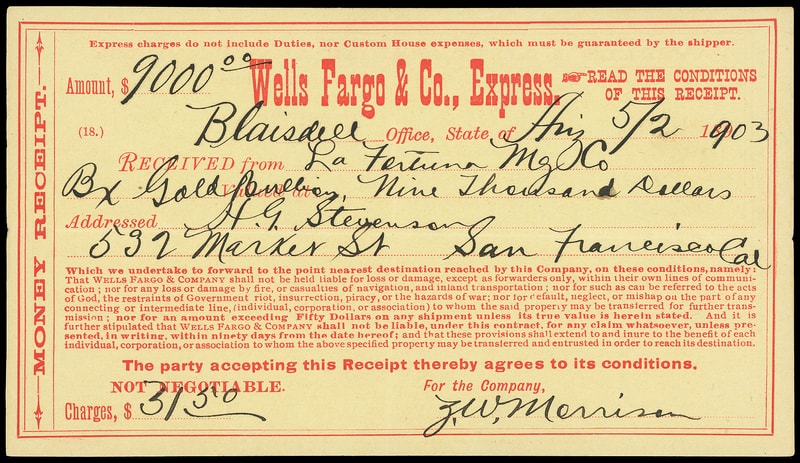 Express charges do not include Duties, nor Custom House expenses, which must be guaranteed by the shipper.
Amount, $ 9000⁰⁰ Wells Fargo & Co., Express. ☞READ THE CONDITIONS
OF THIS RECEIPT.
(18.) Blaisdell Office, State of Ariz 5/2 1903
RECEIVED from La Fortuna Mg Co
Bx Gold Bullion, Valued at Nine Thousand Dollars
Addressed H. G. Stevenson
532 Market St San Francisco Cal
Which we undertake to forward to the point nearest destination reached by this Company, on these conditions, namely:
That WELLS FARGO & COMPANY shall not be held liable for loss or damage, except as forwarders only, within their own lines of communi-
cation; nor for any loss or damage by fire, or casualties of navigation, and inland transportation; nor for such as can be referred to the acts
of God, the restraints of Government riot, insurrection, piracy, or the hazards of war; nor for default, neglect, or mishap on the part of any
connecting or intermediate line, (individual, corporation, or association) to whom the said property may be transferred for further trans-
mission; nor for an amount exceeding Fifty Dollars on any shipment unless its true value is herein stated. And it is
further stipulated that WELLS FARGO & COMPANY shall not be liable, under this contract, for any claim whatsoever, unless pre-
sented, in writing, within ninety days from the date hereof; and that these provisions shall extend to and inure to the benefit of each
individual, corporation, or association to whom the above specified property may be transferred and entrusted in order to reach its destination.
The party accepting this Receipt thereby agrees to its conditions.
NOT NEGOTIABLE. For the Company,
Charges, $ 31 50 Z. W. Morrison
MONEY RECEIPT.